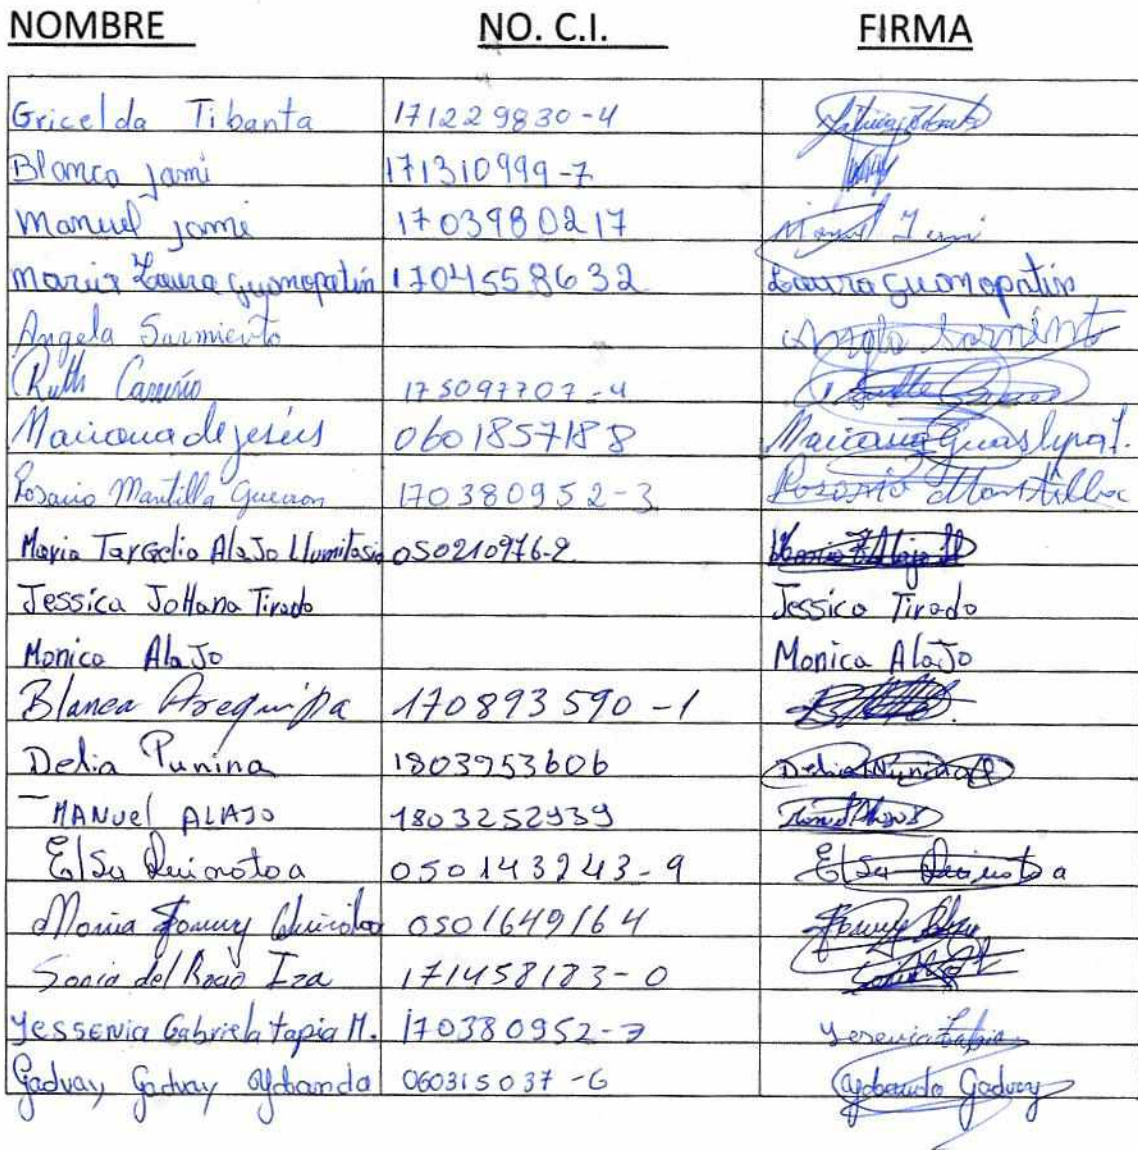 NOMBRE NO. C.I. FIRMA
Gricelda Tibanta 171229830-4
Blanca Jami 171310999-7
Manuel Jami 1703980217 Manuel Jami
Maria Laura Guanopatin 1704558632 Laura Guanopatin
Angela Sarmiento Angela Sarmiento
Ruth 175097707-4
Mariana de jesús 0601857188 Mariana
Rosario Mantilla Guerron 170380952-3 Rosario Mantilla
Maria Targelia AlaJo Llumitasig 050210976-2
Jessica JoHana Tirado Jessica Tirado
Monica AlaJo Monica AlaJo
Blanca Arequipa 170893590-1
Delia Punina 1803953606 Delia Punina
MANuel ALAJO 1803252939
Elsa 050143243-9 Elsa
Maria Fanny 0501649164 Fanny
Sonia del Rocio Iza 171458183-0
Jessenia Gabriela tapia M. 170380952-3 Yesenia tapia
Gadvay Gadvay Yolanda 060315037-6 Yolanda Gadvay